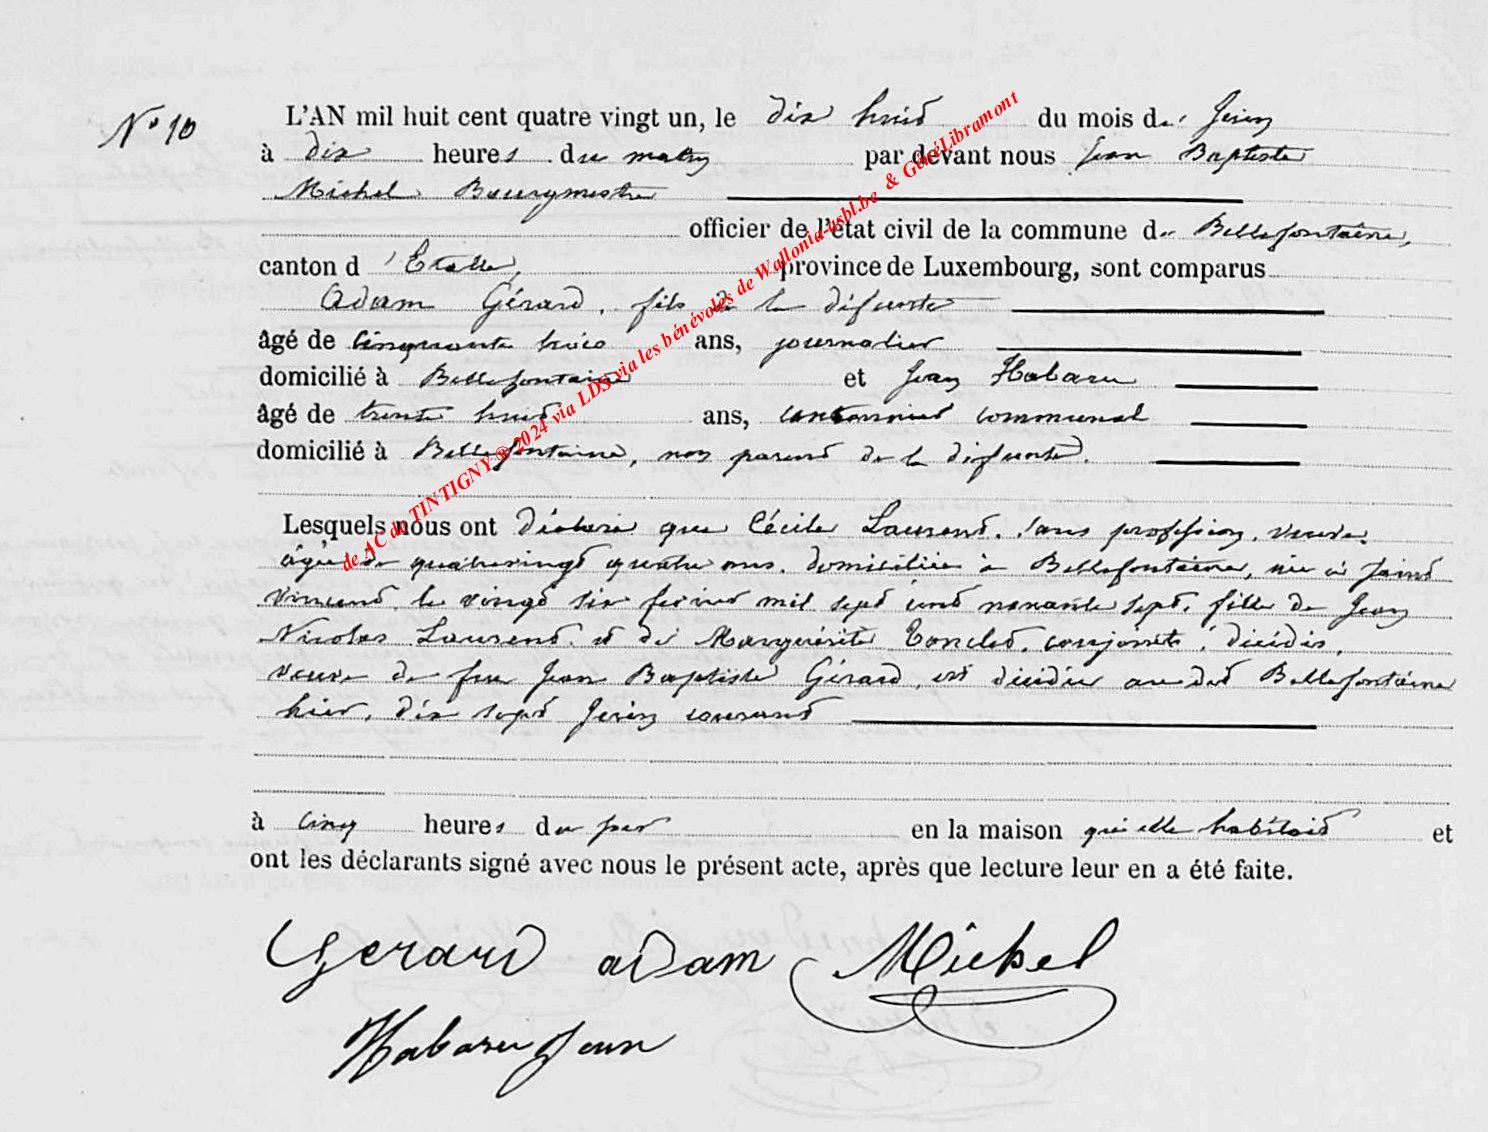 N° 10
L'AN mil huit cent quatre vingt un, le dix huit du mois de Juin
à dix heures du matin par devant nous Jean Baptiste
Michel Bourgmestre
officier de l'état civil de la commune de Bellefontaine,
canton d'Etalle, province de Luxembourg, sont comparus
Adam Gérard, fils de la défunte
âgé de cinquante huit ans, journalier
domicilié à Bellefontaine et Jean Habaru
âgé de trente huit ans, cantonnier communal
domicilié à Bellefontaine, non parent de la défunte.
Lesquels nous ont déclaré que Cécile Laurent, sans profession, veuve,
âgée de quatrevingt quatre ans, domiciliée à Bellefontaine, née à Saint
Vincent, le vingt six février mil sept cent nonante sept, fille de Jean
Nicolas Laurent, et de Marguérite Tonclet, conjoints, décédés,
veuve de feu Jean Baptiste Gérard, est décédée au dit Bellefontaine
hier, dix sept Juin courant
à cinq heures du soir en la maison qu'elle habitait et
ont les déclarants signé avec nous le présent acte, après que lecture leur en a été faite.
Gerard adam Michel
Habaru Jean
de AC de TINTIGNY ® 2024 via LDS via les bénévoles de Wallonia-asbl.be & GénéLibramont